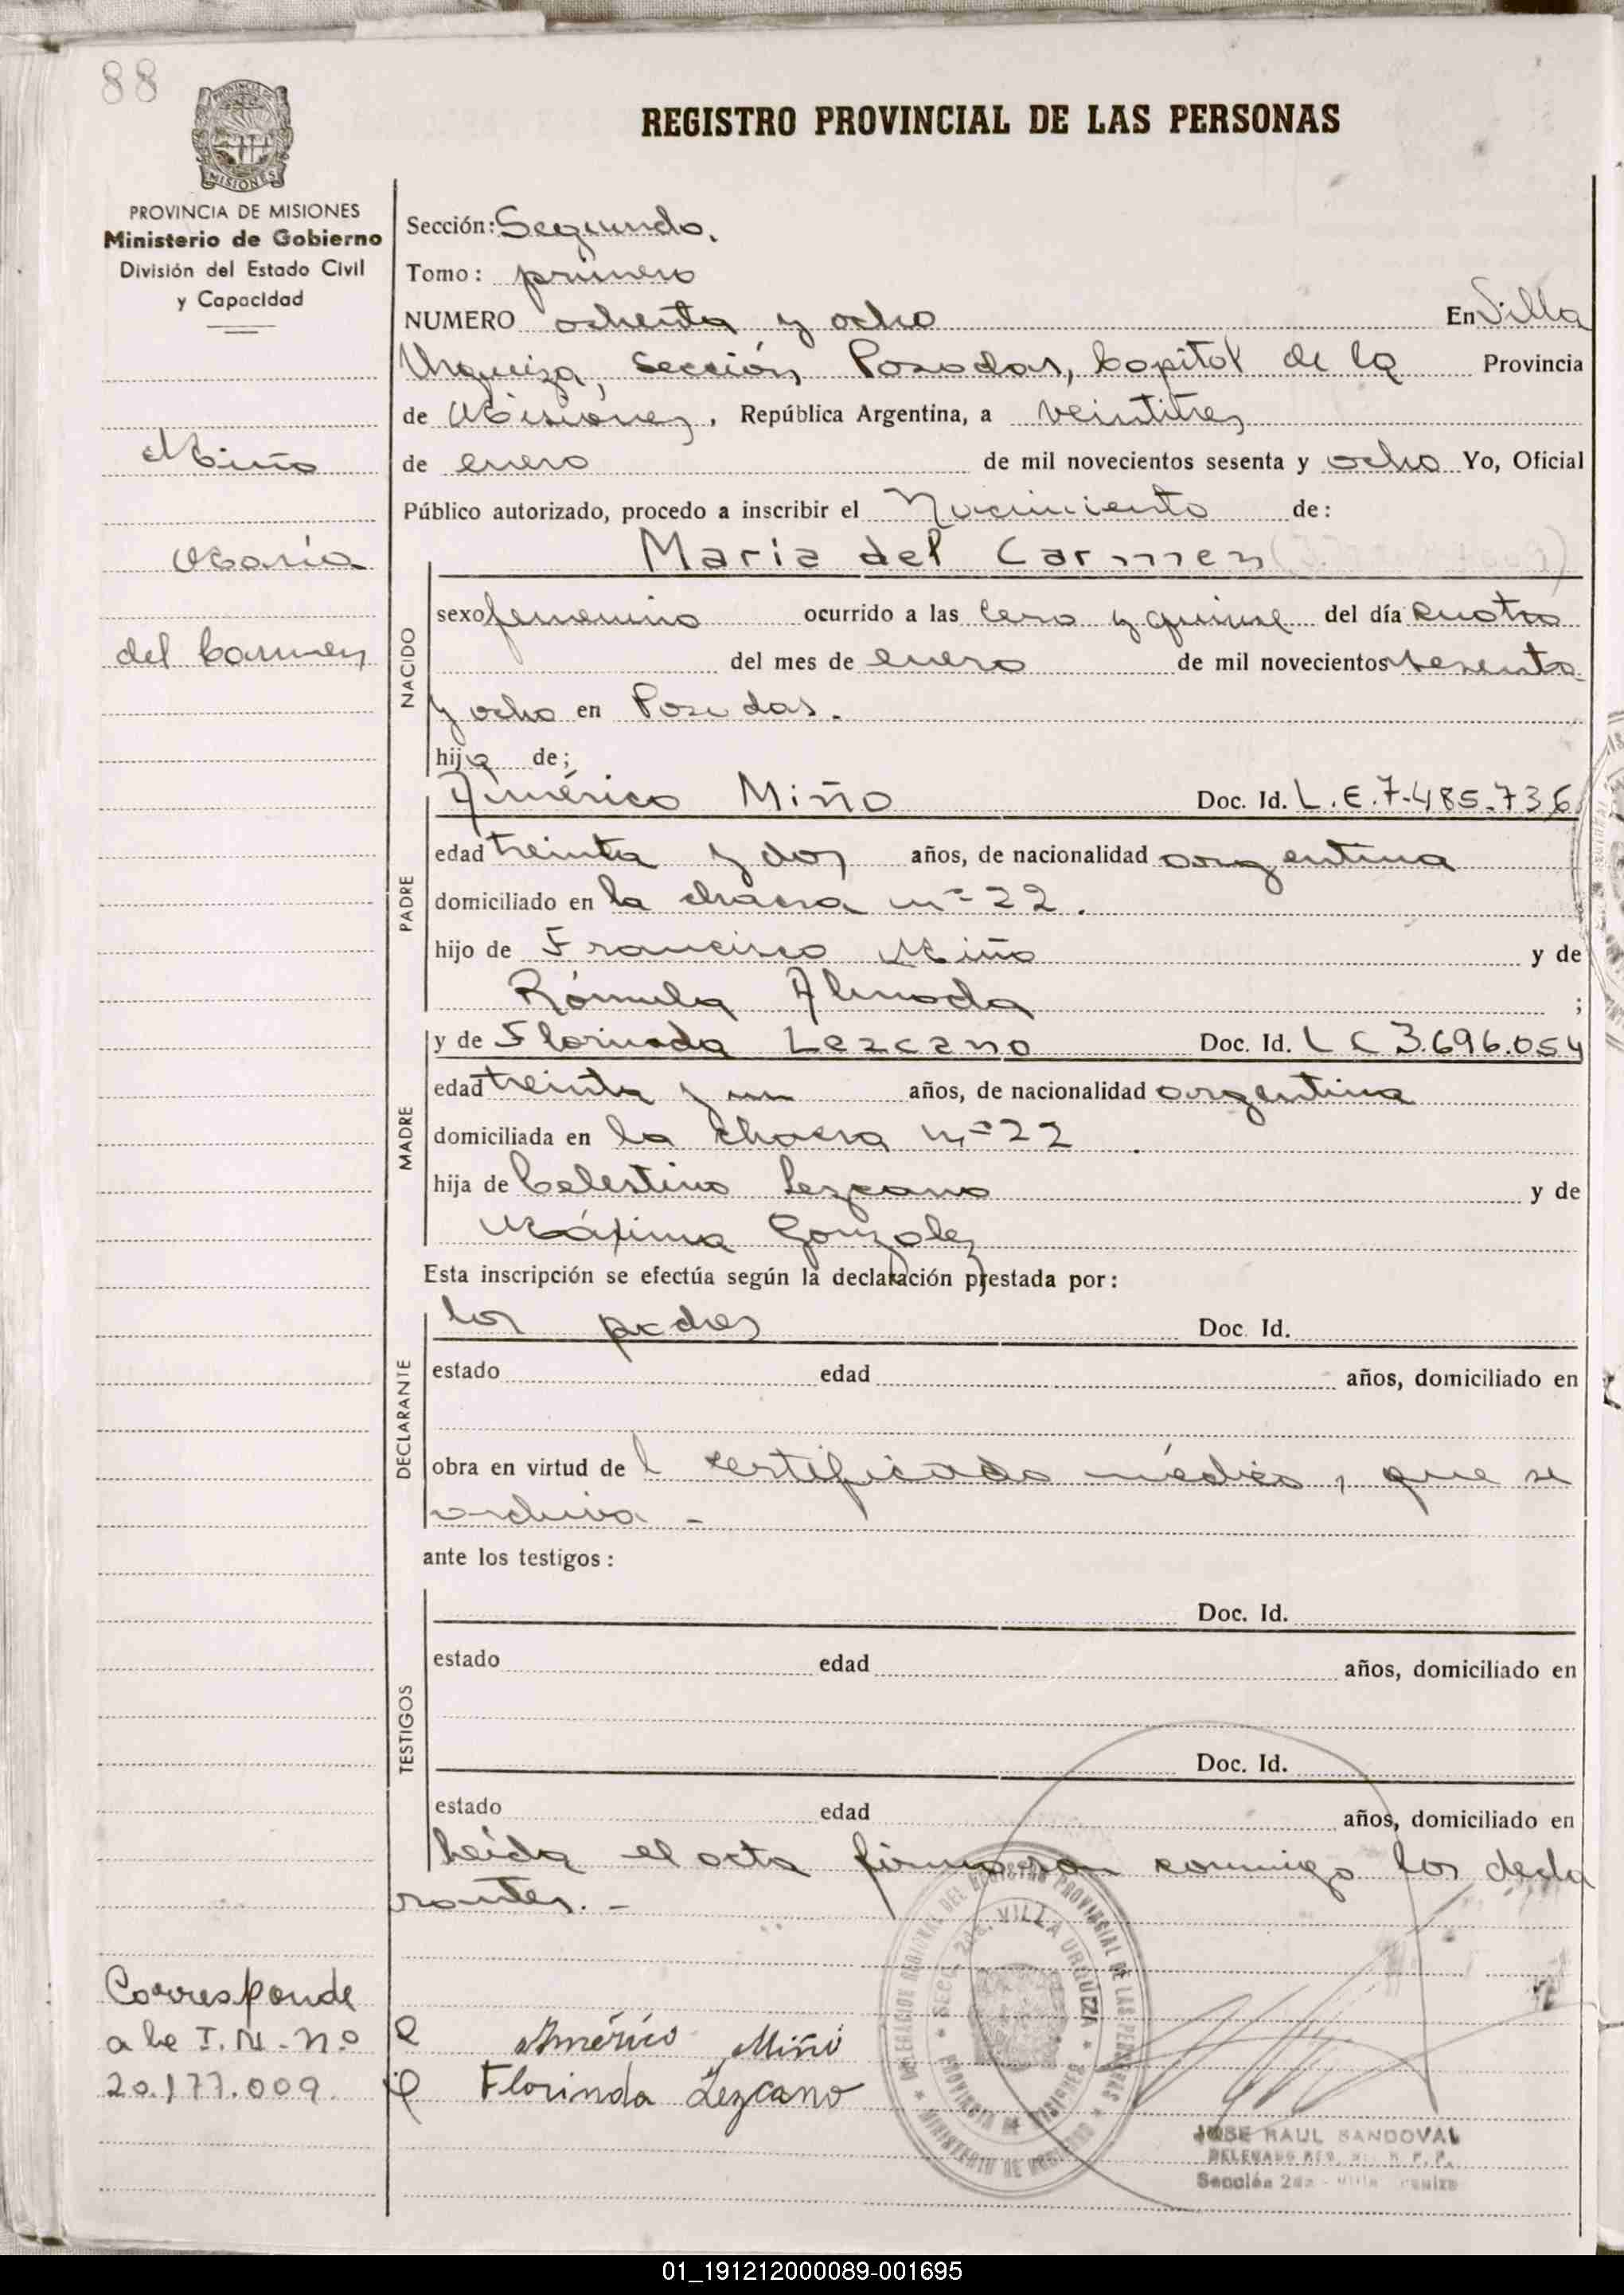 88
PROVINCIA DE MISIONES
Ministerio de Gobierno
División del Estado Civil
y Capacidad
REGISTRO PROVINCIAL DE LAS PERSONAS
Sección: Segunda.
Tomo: primero
NUMERO ochenta y ocho En Villa
Urquiza, Sección Posadas, Capital de la Provincia
de Misiones, República Argentina, a veintitres
de enero de mil novecientos sesenta y ocho Yo, Oficial
Público autorizado, procedo a inscribir el Nacimiento de:
Miño
María
del Carmen
NACIDO
Maria del Carmen
sexo femenino ocurrido a las cero y quince del día cuatro
del mes de enero de mil novecientos sesenta
y ocho en Posadas.
hija de;
PADRE
Américo Miño Doc. Id. L.E.7.485.736
edad treinta y dos años, de nacionalidad argentina
domiciliado en la chacra nº 22.
hijo de Francisco Miño y de
Rómula Almada ;
MADRE
y de Florinda Lezcano Doc. Id. L C 3.696.054
edad treinta y un años, de nacionalidad argentina
domiciliada en la chacra nº 22.
hija de Celestino Lezcano y de
Máxima Gonzalez
Esta inscripción se efectúa según la declaración prestada por:
DECLARANTE
los padres Doc. Id.
estado edad años, domiciliado en
obra en virtud del certificado médico, que se
archiva -
ante los testigos:
TESTIGOS
Doc. Id.
estado edad años, domiciliado en
Doc. Id.
estado edad años, domiciliado en
Leída el acta firmaron conmigo los decla
rantes. -
Corresponde
a la I.N. nº
20.177.009.
Américo Miño
Florinda Lezcano
DELEGACION REGIONAL DEL REGISTRO PROVINCIAL DE LAS PERSONAS
MINISTERIO DE GOBIERNO
SECC. 2da. VILLA URQUIZA
PROVINCIA DE MISIONES
JOSE RAUL SANDOVAL
DELEGADO
Sección 2da - Villa Urquiza
01_191212000089-001695